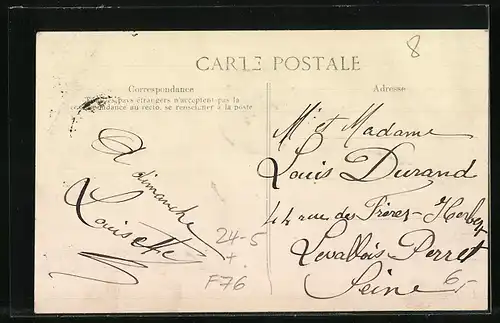 8
CARTE POSTALE
Correspondance
Tous les pays étrangers n'acceptent pas la
correspondance au recto, se renseigner à la poste
Adresse
A dimanche
Louisette
24-5
+
F76
Mr et Madame
Louis Durand
44 rue des Frères-Herbert
Levallois-Perret
Seine
6,-